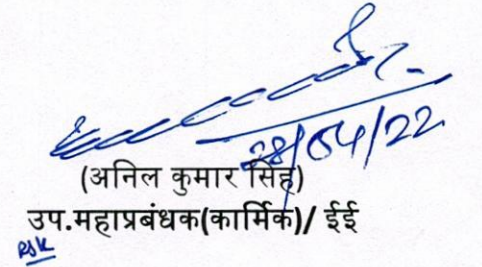 28/04/22
(अनिल कुमार सिंह)
उप.महाप्रबंधक(कार्मिक)/ ईई
RSK